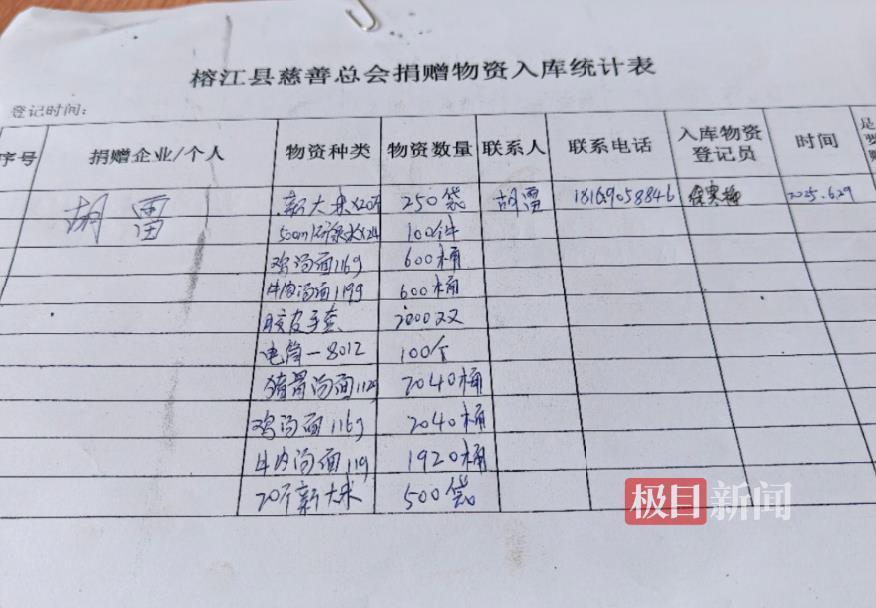 榕江县慈善总会捐赠物资入库统计表
登记时间：
序号 捐赠企业/个人 物资种类 物资数量 联系人 联系电话 入库物资登记员 时间 是
胡雷 薪大米×20斤 250袋 胡雷 18169058846 2025.6.29
500ml 100件
鸡汤面116g 600桶
牛肉汤面119g 600桶
胶皮手套 2000双
电筒-8012 100个
猪骨汤面112g 2040桶
鸡汤面116g 2040桶
牛肉汤面119 1920桶
20斤薪大米 500袋
极目新闻